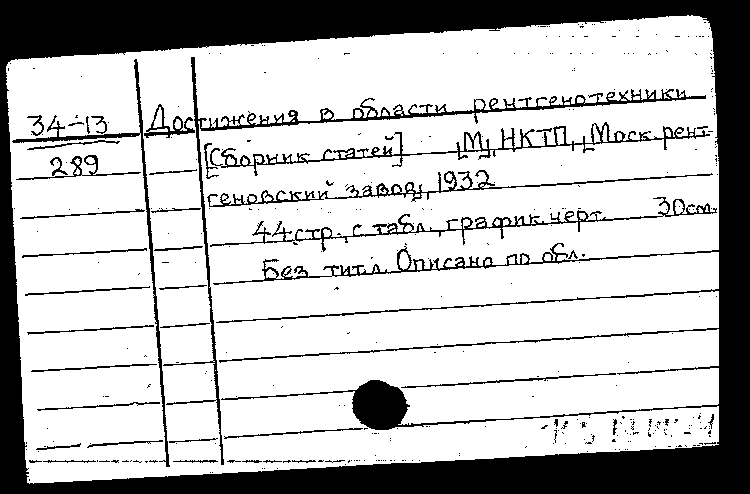 34-13 Достижения в области рентгенотехники
289 [Сборник статей] [М], НКТП, [Моск. рент-
геновский завод], 1932
44 стр., с табл., график. черт. 30 см.
Без тит. л. Описано по обл.